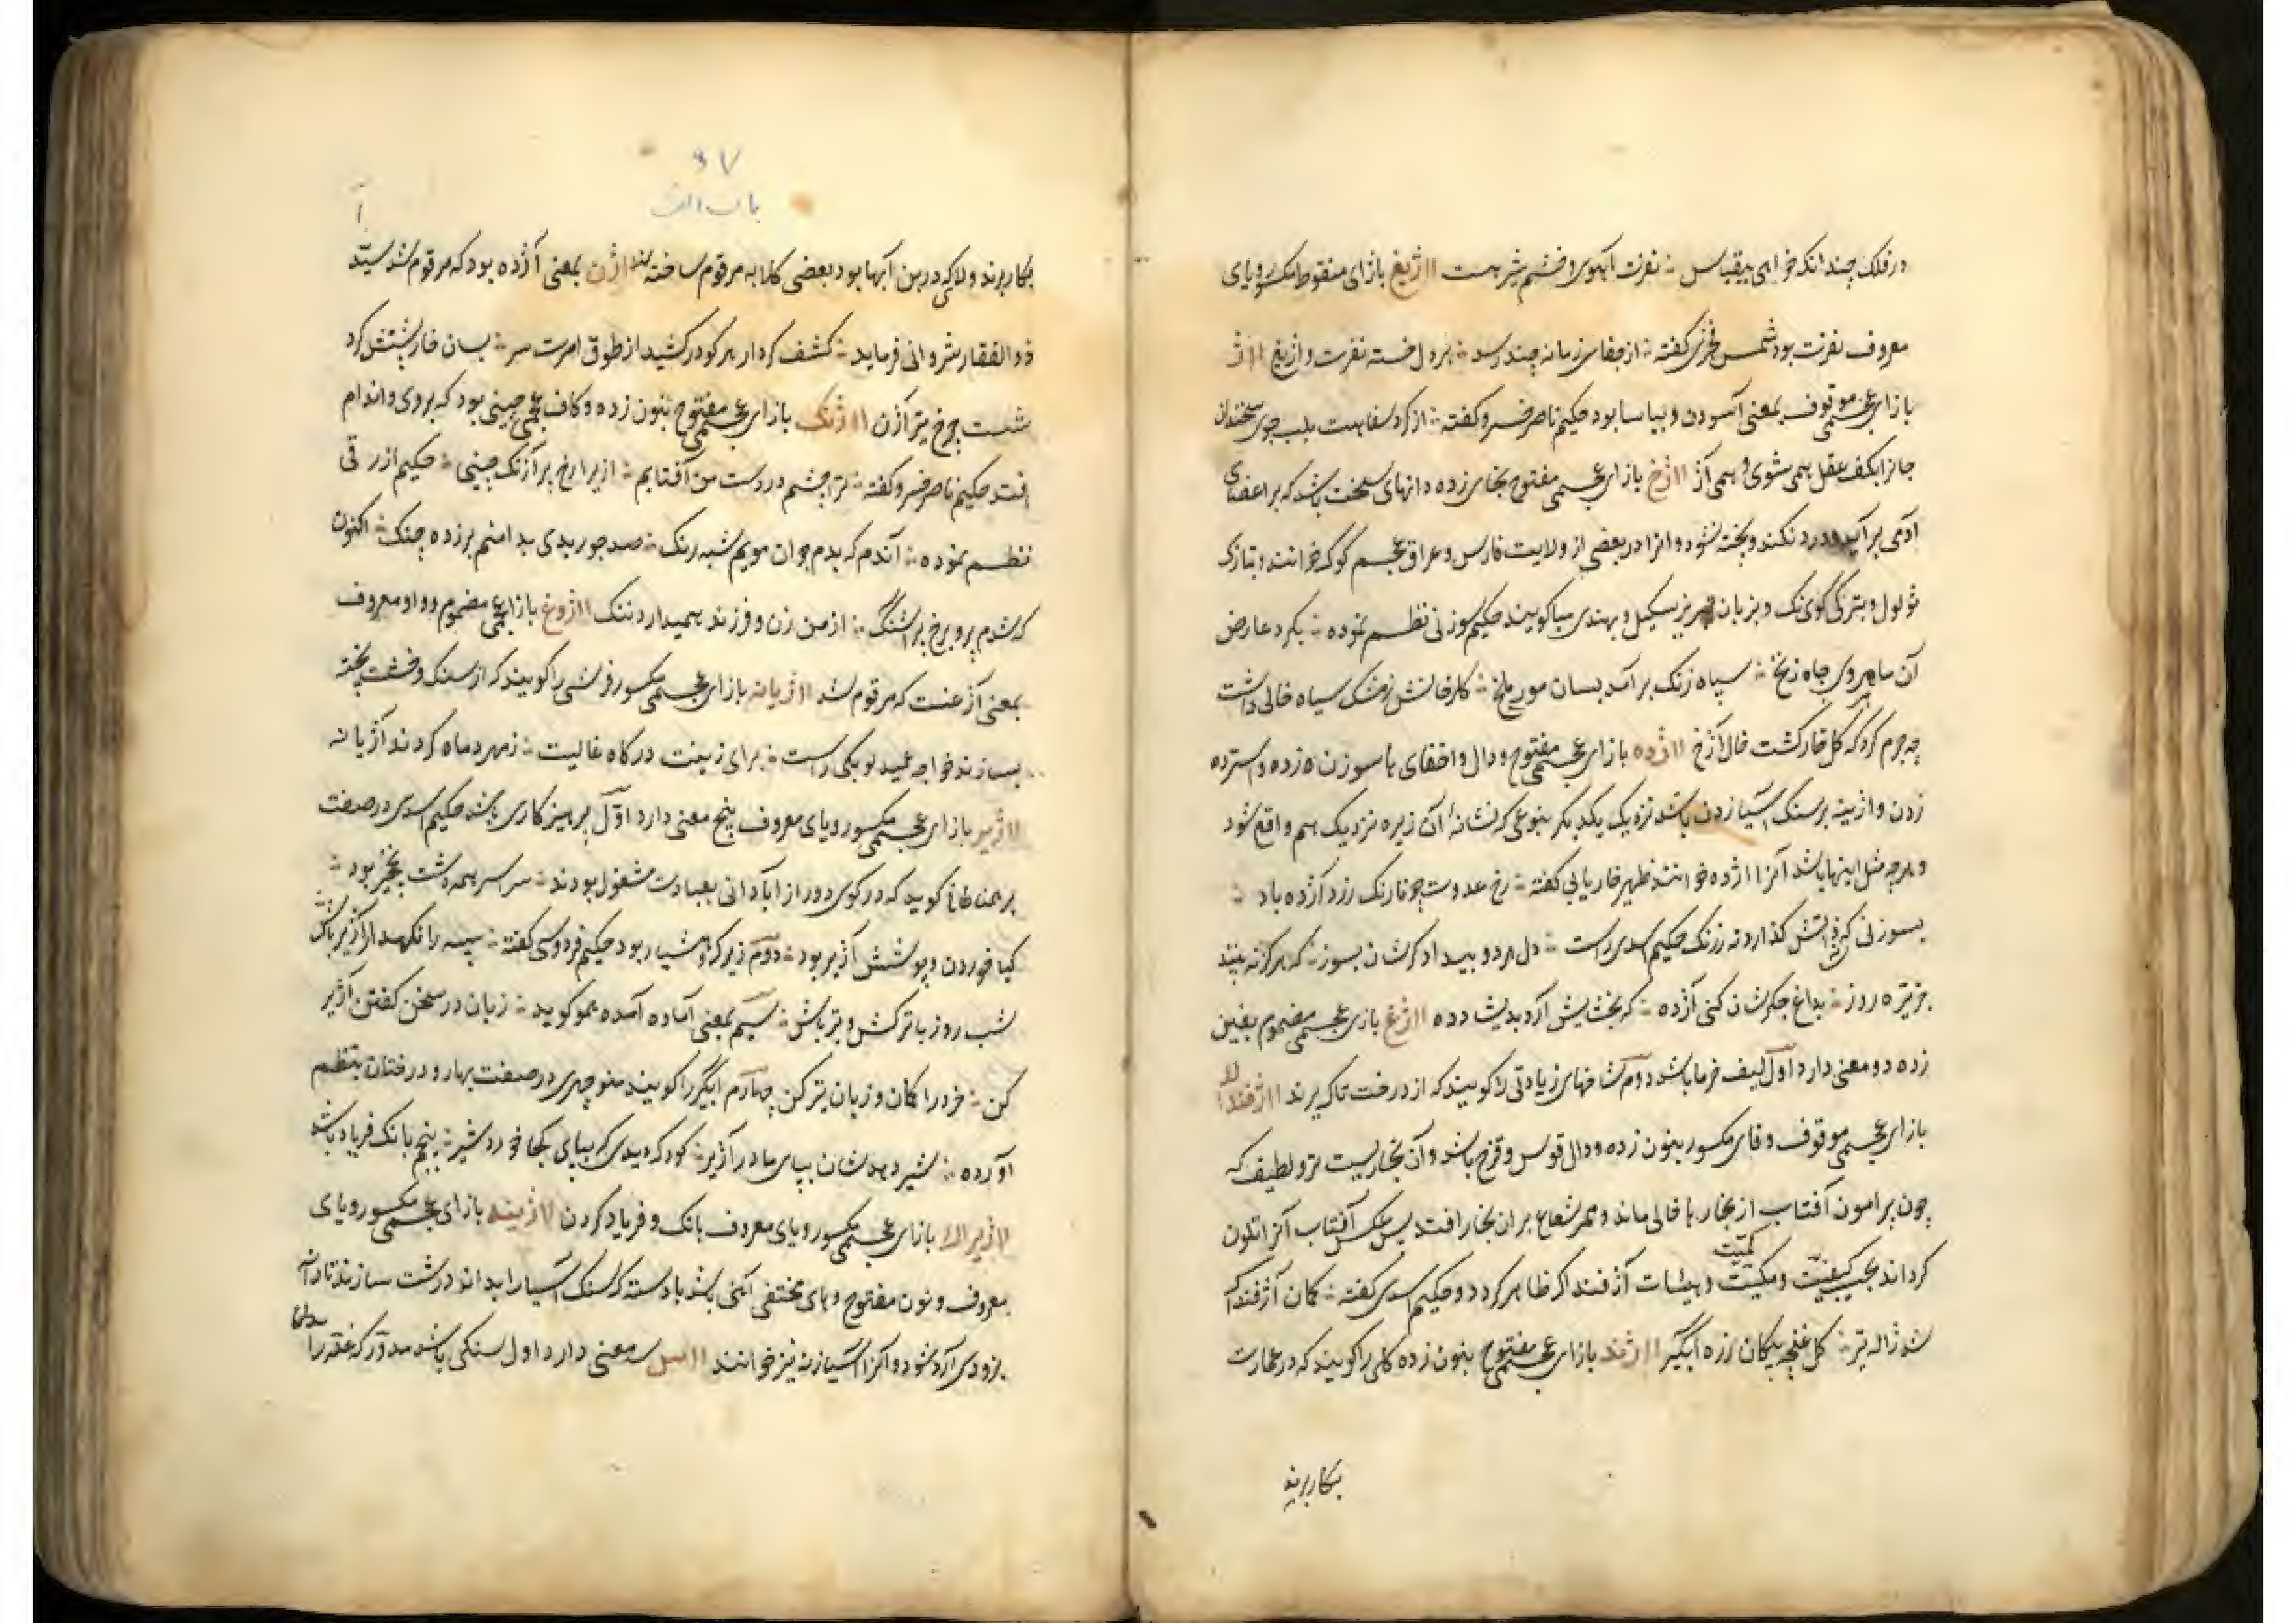 در فلک چندانکه خواهی بیقیاس ؞ نفرت آهوی و خشم شیر هست ااژیغ بازای منقوطه مکسور و یای
معروف نفرت بود شمس فخری کفته ؞ از جفای زمانه چند رسد ؞ بردل خسته نفرت و ازیغ ااژ
بازای عجمی موقوف بمعنی آسودن و بیاسا بود حکیم ناصر خسرو کفته ؞ از کرد سفاهت بلب جوی سخندان
جانرا بکف عقل همی شوی و همی آژ ااژخ بازای عجمی مفتوح بخای زده دانهای سخت باشد که بر اعضای
آدمی برآید و درد نکند و پخته نشود و انرا در بعضی از ولایت فارس و عراق عجم کوکه خوانند و بتازی
ثولول و بترکی کوی نک و بزبان تبریز سکیل و بهندی مسا کویند حکیم سوزنی نظم نموده ؞ بکرد عارض
آن ماهروی چاه زنخ ؞ سپاه زنک برآمد بسان مور و ملخ ؞ کلرخانش ز مشک سیاه خالی داشت
چه جرم کرد که کل خار کشت خال آزخ ااژده بازای عجمی مفتوح و دال و اخفای ها سوزن زده و استرده
زدن و آژینه بر سنک آسیا زدن باشد نزدیک یکدیکر بنوعی که نشانه آن زیره نزدیک هم واقع شود
و هرچه مثل اینها باشد آنرا اژده خوانند ظهیر فاریابی کفته ؞ رخ عدوت چو نارنک زرد آژده باد ؞
بسوزنی که زآتش کذارد نه زرنک حکیم اسدی راست ؞ دل مرد و بیداد کرشان بسوز ؞ که هرکز نه بینند
جز تیره روز ؞ بداغ جکرشان کنی آژده ؞ که بخشایش آرد بدیشان دده ااژغ بازی عجمی مضموم بغین
زده دو معنی دارد اول لیف خرما باشد دوم شاخهای زیادتی را کویند که از درخت تاک برند ااژفنداک
بازای عجمی موقوف و فای مکسور بنون زده و دال قوس و قزح باشد و آن بخاریست تر و لطیف که
چون پرامون آفتاب از بخار ها خالی ماند و ممر شعاع بران بخار افتد پس عکس آفتاب آنرا تلون
کرداند بحیب کیفیت و مکیت کمیت و هیئات آذفنداک ظاهر کردد و حکیم اسدی کفته ؞ کمان آژفنداک
شد ژاله تیر ؞ کل غنچه پیکان زره آبکیر ااژند بازای عجمی مفتوح بنون زده کلی را کویند که در عمارت
بکار برند
باب الف
آ
بکار برند و لاکی که در بن آبها بود بعضی کلابه مرقوم ساخته‌اند ااژن بمعنی آژده بود که مرقوم شد سید
ذوالفقار شروانی فرماید ؞ کشف کردار هر کو در کشید از طوق امرت سر ؞ بسان خارپشتش کرد
شست چرخ تیر آژن ااژنک بازای عجمی مفتوح بنون زده و کاف عجمی چینی بود که بروی و اندام
افتد حکیم ناصر خسرو کفته ؞ ترا چشم درد ست من آفتابم ؞ ازیرا رخ پر آژنک چینی ؞ حکیم ازرقی
نظم نموده ؞ آندم که بدم جوان مویم شبه رنک ؞ صد حور بدی بدامنم برزده چنک ؞ اکنون
که شدم پیر و برخ پر آژنک ؞ از من زن و فرزند همیدارد ننک ااژوغ بازای عجمی مضموم و واو معروف
بمعنی آژغست که مرقوم شد ااژیانه بازای عجمی مکسور فرشی را کویند که از سنک و خشت پخته
بسازند خواجه عمید لوبکی راست ؞ برای زینت درکاه عالیت ؞ ز مهر و ماه کردند آژیانه
ااژیر بازای عجمی مکسور و یای معروف پنج معنی دارد اول پرهیزکاری باشد حکیم اسدی در صفت
برهمنان کوید که در کوی دور از آبادانی بعبادت مشغول بودند ؞ سراسر همه دشت نخچیر بود ؞
کیا خوردن و پوشش آژیر بود ؞ دوم زیرک و هشیار بود حکیم فردوسی کفته ؞ سپه را نکهدار و آژیر باش
شب روز با ترکش و تیر باش ؞ سیم بمعنی آماده آمده همو کوید ؞ زبان در سخن کفتن آژیر
کن ؞ خرد را کمان و زبان تیر کن چهارم ابکیر را کویند منوچهری در صفت بهار و درختان بنظم
آورده ؞ شیر دهدشان بپای مادر آژیر ؞ کودک دیدی که بپای بکجا خورد شیر ؞ پنجم بانک فریاد باشد
ااژیراک بازای عجمی مکسور و یای معروف بانک و فریاد کردن ااژینه بازای عجمی مکسور و یای
معروف و نون مفتوح و های مختفی آهنی باشد با دسته که سنک آسیا را بدان درشت سازند تا دانه
بزودی آرد شود و آنرا آسیازنه نیز خوانند ااس سه معنی دارد اول سنکی باشد مدور که غله را بدان